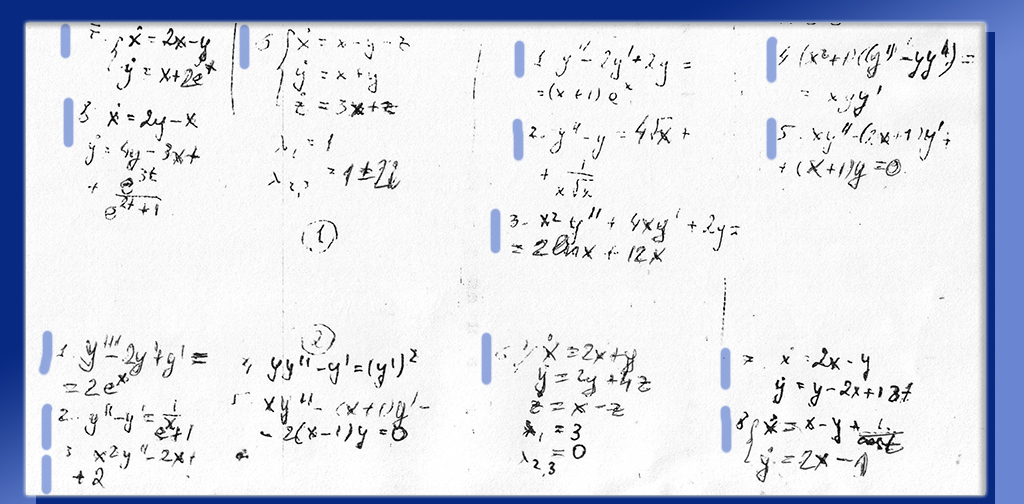 7. ẋ = 2x - y
ẏ = x + 2e^x
8. ẋ = 2y - x
ẏ = 4y - 3x +
+ e^3t / e^2t + 1
5 ẋ = x - y - z
ẏ = x + y
ż = 3x + z
λ1 = 1
λ2,3 = 1 ± 2i
①
1. y'' - 2y' + 2y =
= (x + 1) e^x
2. y'' - y = 4√x +
+ 1 / x√x
3. x² y'' + 4xy' + 2y =
= 2 ln x + 12x
4. (x² + 1)(y'² - yy'') =
= xyy'
5. xy'' - (2x + 1)y' +
+ (x + 1)y = 0
②
1. y''' - 2y' + y' =
= 2e^x
2. y'' - y' = 1 / e^x + 1
3 x² y'' - 2x +
+ 2
yy'' - y' = (y')²
xy'' - (x + 1)y' -
- 2(x - 1)y = 0
ẋ = 2x + y
ẏ = 2y + 4z
ż = x - z
λ1 = 3
λ2,3 = 0
7. ẋ = 2x - y
ẏ = y - 2x + 18t
8 ẋ = x - y + 1 / cos t
ẏ = 2x - y